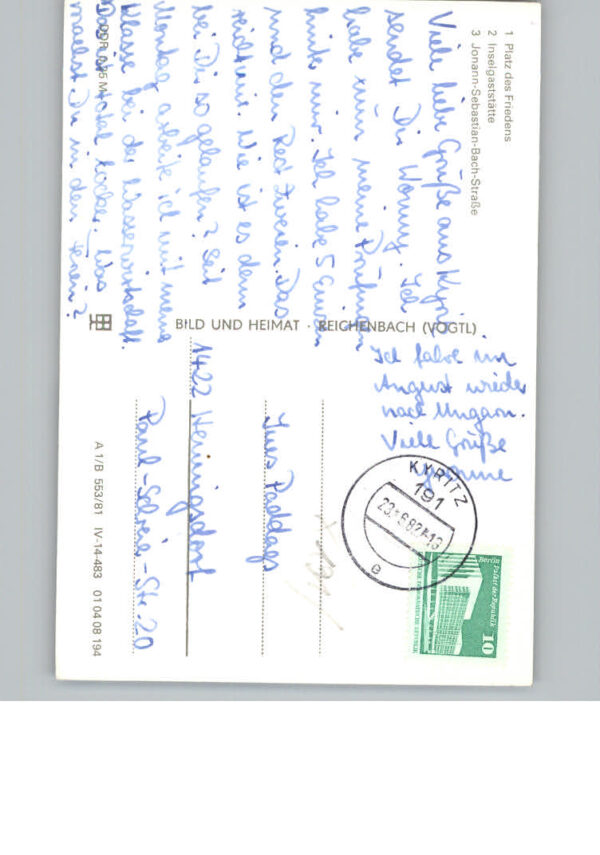 1 Platz des Friedens
2 Inselgaststätte
3 Johann-Sebastian-Bach-Straße
Viele liebe Grüße aus Kyritz
sendet Dir Ich
habe nun meine Prüfungen
hinter mir. Ich habe 5 Einsen
und den Rest Zweien. Das
reicht mir. Wie ist es denn
bei Dir so gelaufen? Seit
Montag arbeite ich mit meiner
Klasse bei der Wasserwirtschaft.
Das ist total locker. Was
machst Du in den Ferien?
Ich fahre im
August wieder
nach Ungarn.
Viele Grüße
DDR 0,25 M
BILD UND HEIMAT · REICHENBACH (VOGTL)
A 1/B 553/81 IV-14-483 01 04 08 194
Ines Paddags
1422 Hennigsdorf
Str. 20
KYRITZ
191
e
Berlin Palast der Republik
10